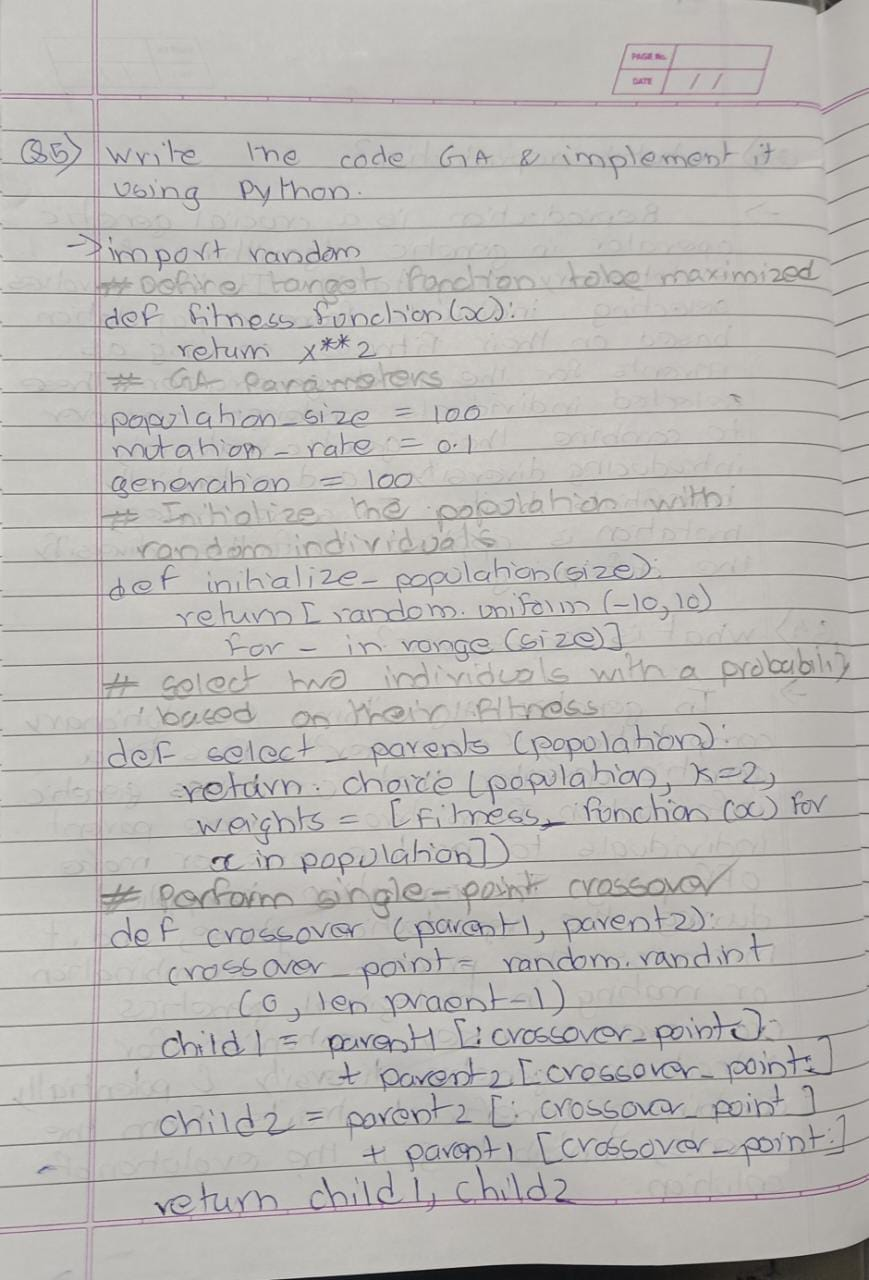 PAGE No.
DATE / /
Q5) Write the code GA & implement it
using Python.
→ import random
# Define target function to be maximized
def fitness function (x):
return x**2
# GA Parameters
population_size = 100
mutation_rate = 0.1
generation = 100
# Initialize the population with
random individuals
def initialize_population(size):
return [random.uniform (-10,10)
for _ in range (size)]
# select two individuals with a probability
based on their fitness
def select_parents (population):
return. choice (population, k=2,
weights = [fitness_function (x) for
x in population])
# Perform single-point crossover
def crossover (parent1, parent2):
crossover_point = random.randint
(0, len praent-1)
child1 = parent1 [:crossover_point]
+ parent2 [crossover_point:]
child2 = parent2 [: crossover_point]
+ parent1 [crossover_point:]
return child1, child2